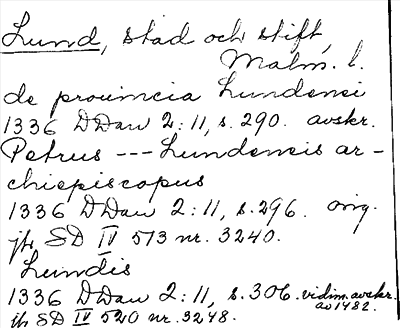 Lund, stad och stift,
Malm. l.
de prouincia Lundensi
1336 DDan 2:11, s. 290. avskr.
Petrus --- Lundensis ar-
chiepiscopus
1336 DDan 2:11, s. 296. orig.
jfr SD IV 513 nr. 3240.
Lundis
1336 DDan 2:11, s. 306. vidim. avskr.
av 1482.
th SD IV 520 nr. 3248.